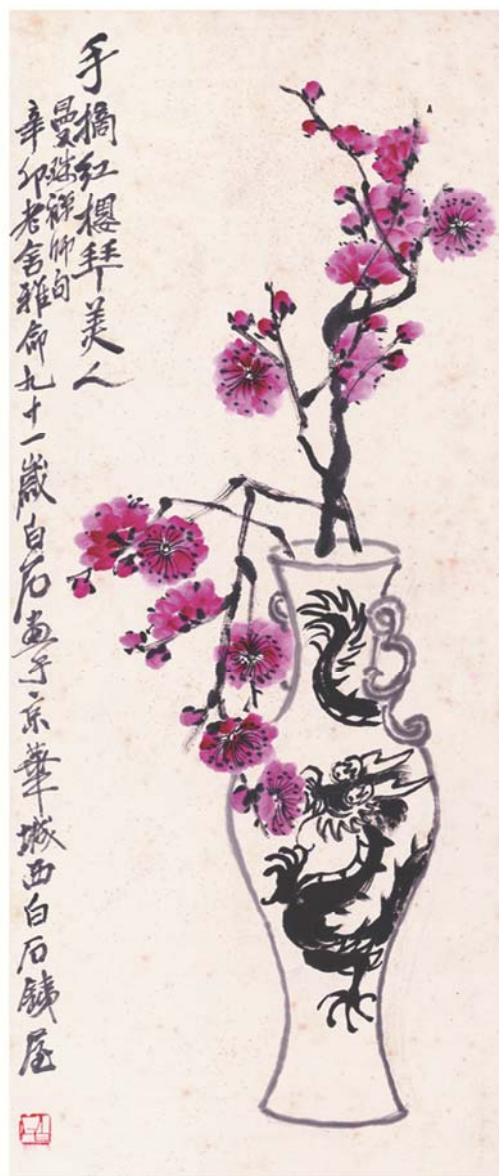 手摘紅櫻拜美人
曼殊禪師句
辛卯老舍雅命九十一歲白石畫于京華城西白石銕屋